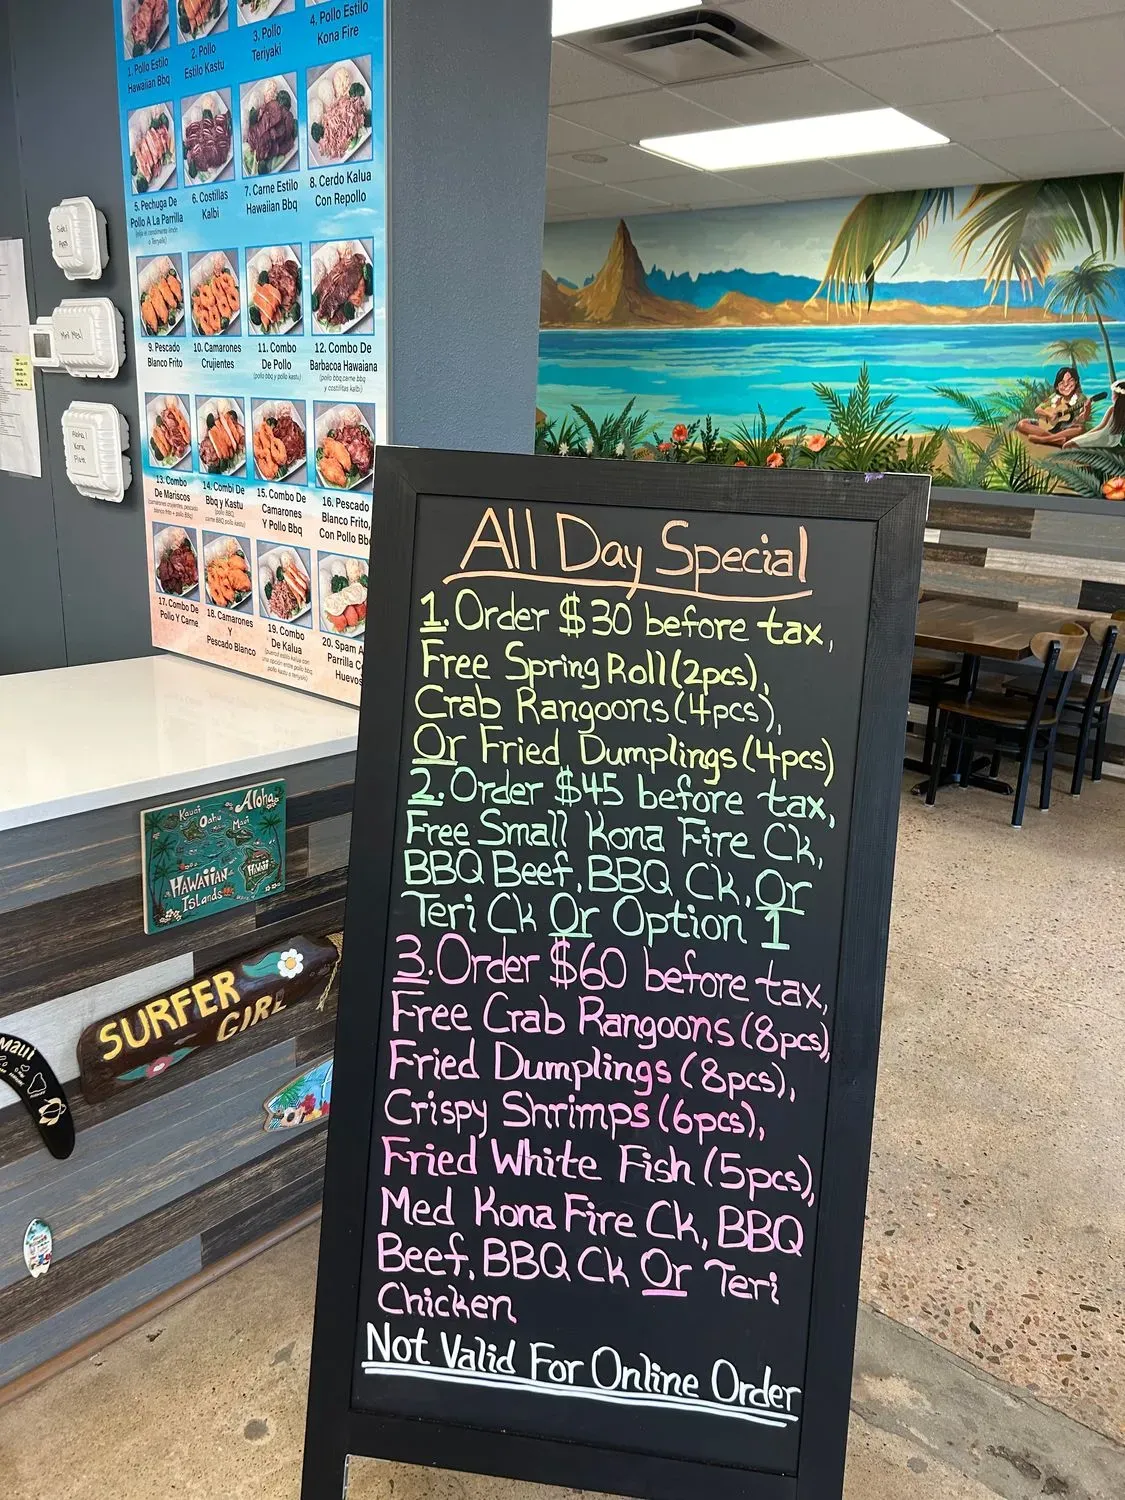 1. Pollo Estilo
Hawaiian Bbq
2. Pollo
Estilo Kastu
3. Pollo
Teriyaki
4. Pollo Estilo
Kona Fire
5. Pechuga De
Pollo A La Parrilla
6. Costillas
Kalbi
7. Carne Estilo
Hawaiian Bbq
8. Cerdo Kalua
Con Repollo
9. Pescado
Blanco Frito
10. Camarones
Crujientes
11. Combo
De Pollo
(pollo bbq y pollo kastu)
12. Combo De
Barbacoa Hawaiana
(pollo bbq, carne bbq
y costillitas kalbi)
13. Combo
De Mariscos
14. Combi De
Bbq y Kastu
15. Combo De
Camarones
Y Pollo Bbq
16. Pescado
Blanco Frito,
Con Pollo Bb
17. Combo De
Pollo Y Carne
18. Camarones
Y
Pescado Blanco
19. Combo
De Kalua
20. Spam A
Parrilla C
Huevos
Mini Meal
Aloha
Kauai
Oahu
Maui
Hawaii
HAWAIIAN
Islands
SURFER
GIRL
Maui
All Day Special
1. Order $30 before tax,
Free Spring Roll (2pcs),
Crab Rangoons (4pcs),
Or Fried Dumplings (4pcs)
2. Order $45 before tax,
Free Small Kona Fire Ck,
BBQ Beef, BBQ Ck, Or
Teri Ck Or Option 1
3. Order $60 before tax,
Free Crab Rangoons (8pcs),
Fried Dumplings (8pcs),
Crispy Shrimps (6pcs),
Fried White Fish (5pcs),
Med Kona Fire Ck, BBQ
Beef, BBQ Ck Or Teri
Chicken
Not Valid For Online Order